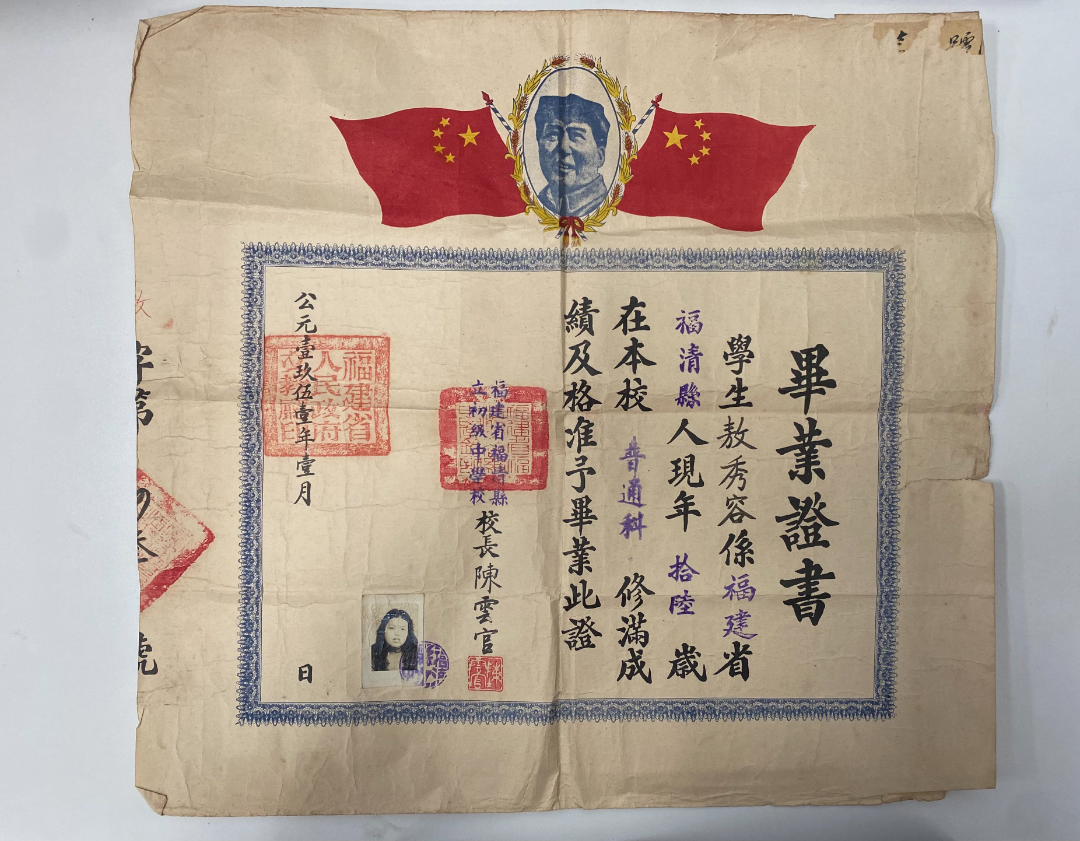 號
畢業證書
學生敖秀容係福建省
福清縣人現年拾陸歲
在本校普通科修滿成
績及格准予畢業此證
福建省福清縣
立初級中學校校長陳雲官
公元壹玖伍壹年壹月 日
福建省
人民政府
字第
號